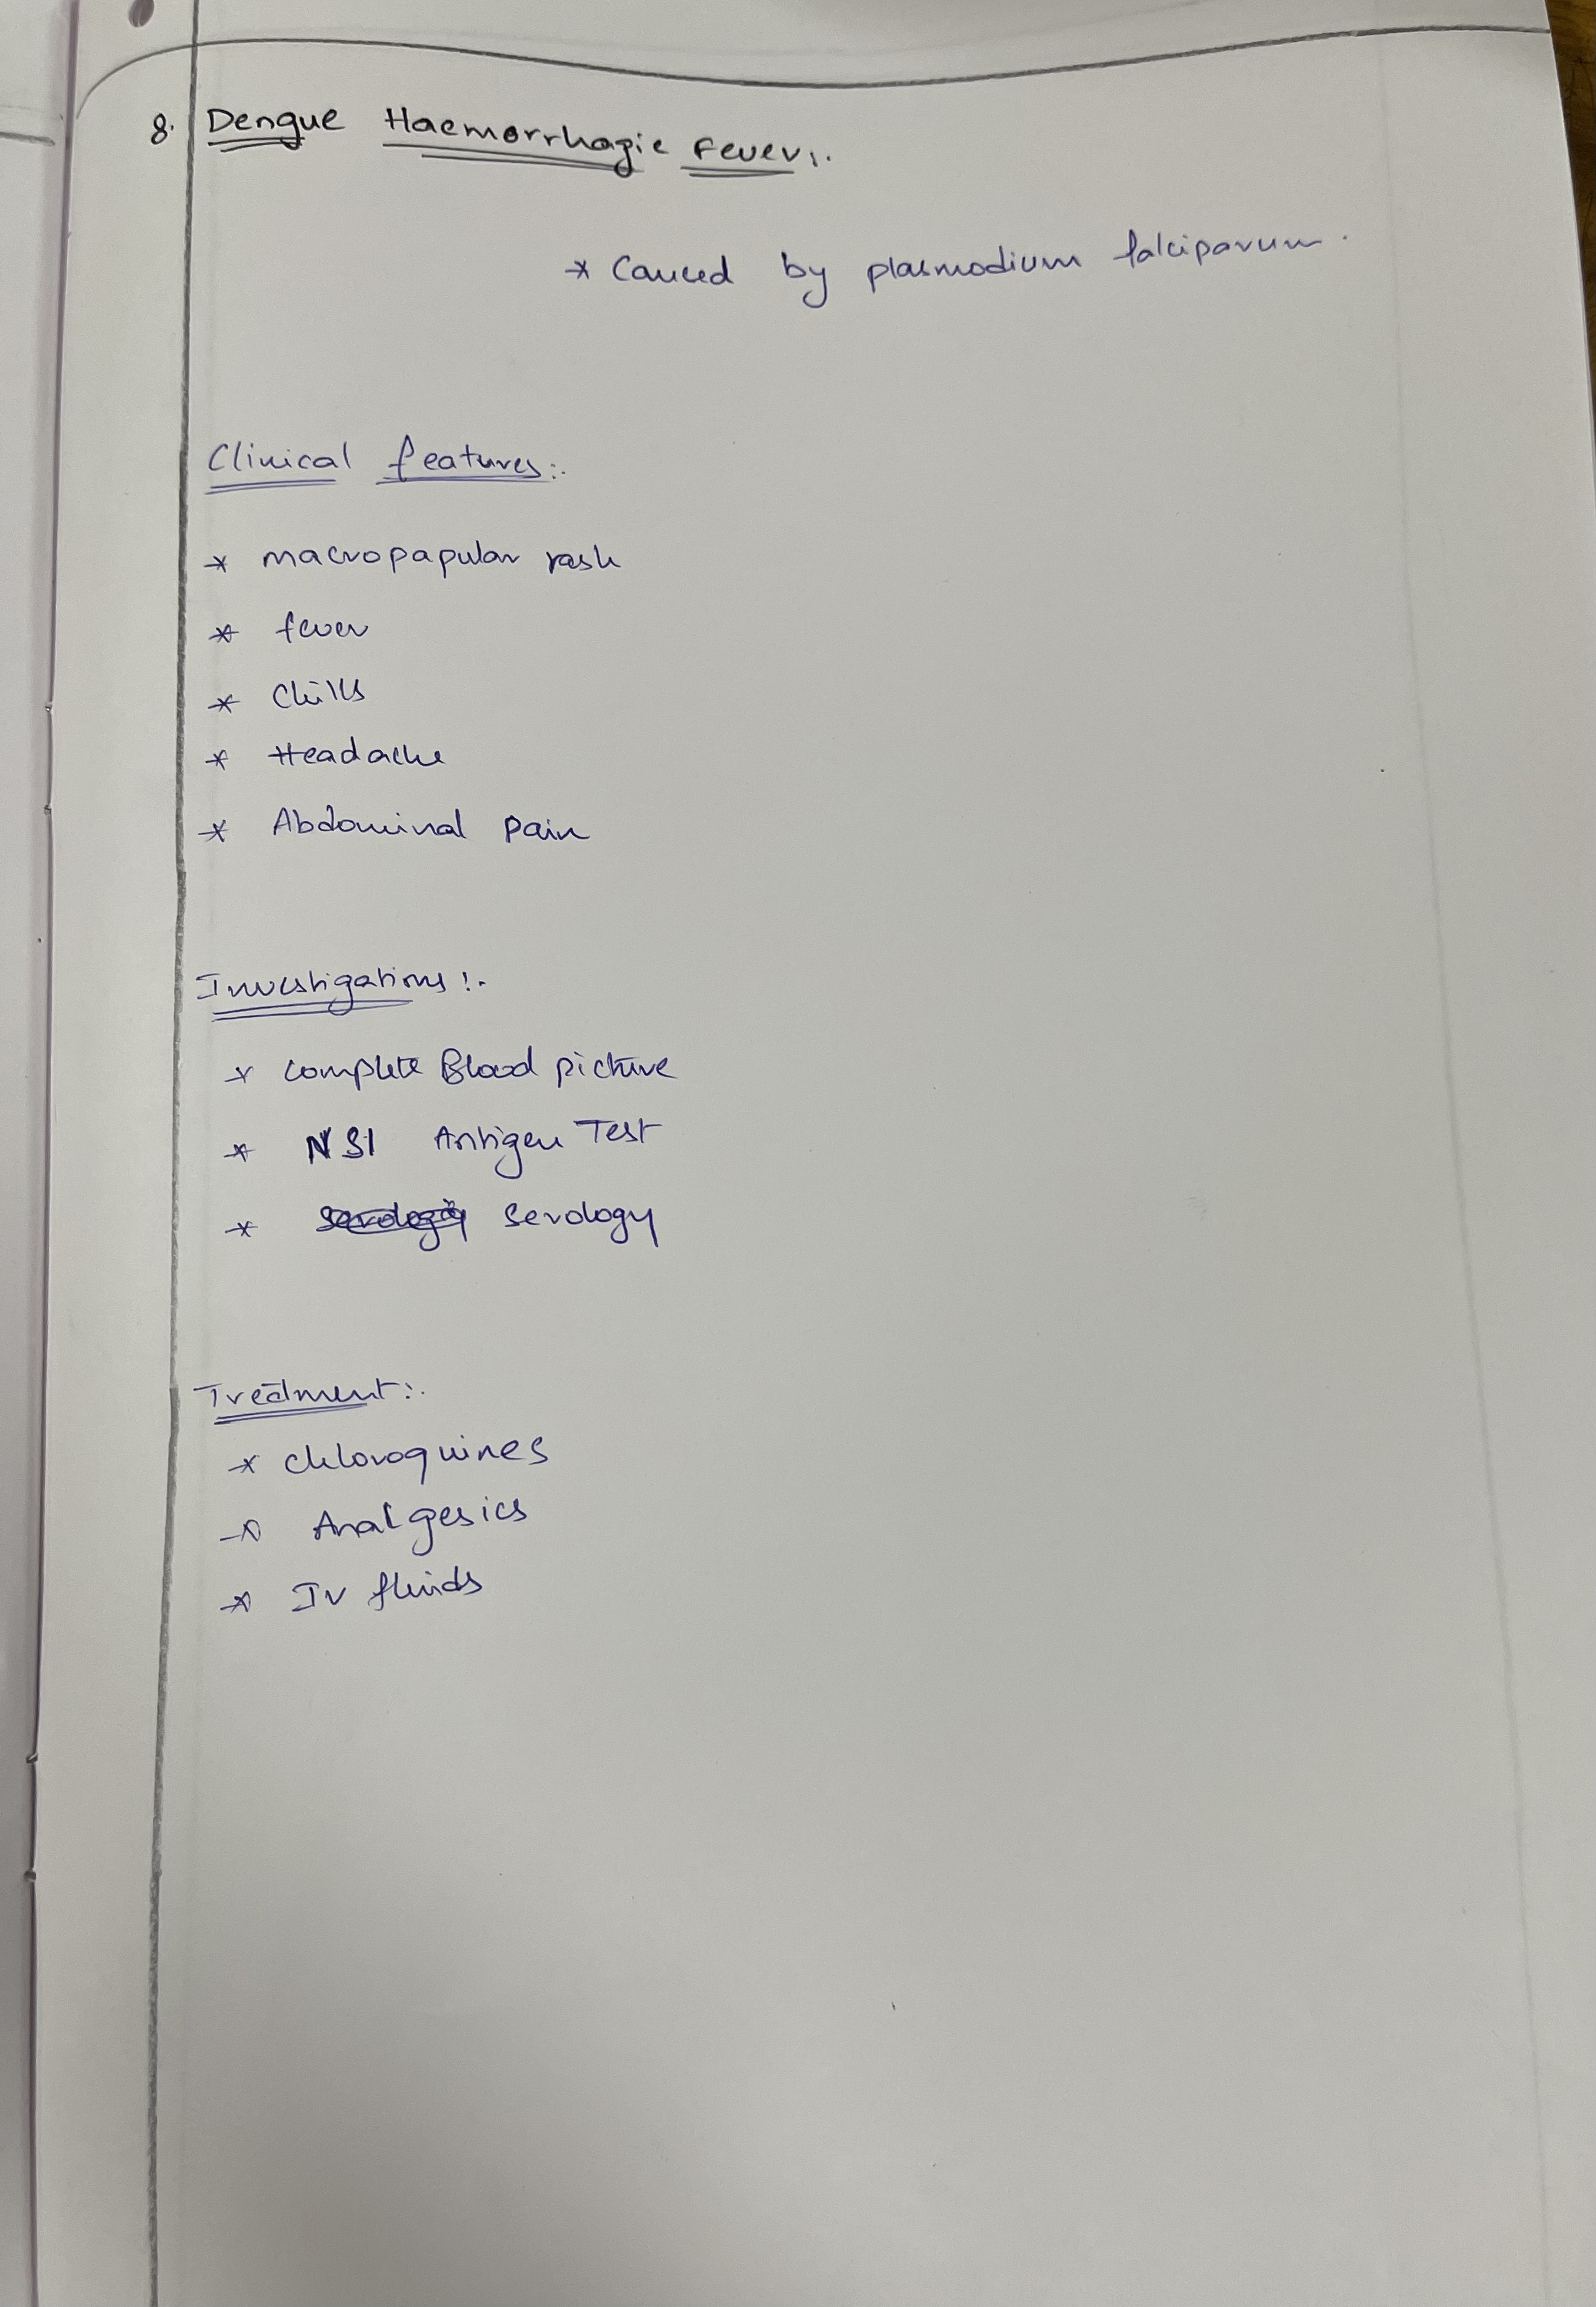 8. Dengue Haemorrhagic Fever:.
* Caused by plasmodium falciparum.
Clinical features:.
* macropapular rash
* fever
* Chills
* Headache
* Abdominal pain
Investigations:.
* Complete Blood picture
* NS1 Antigen Test
* serology
Treatment:.
* chloroquines
* Analgesics
* IV fluids